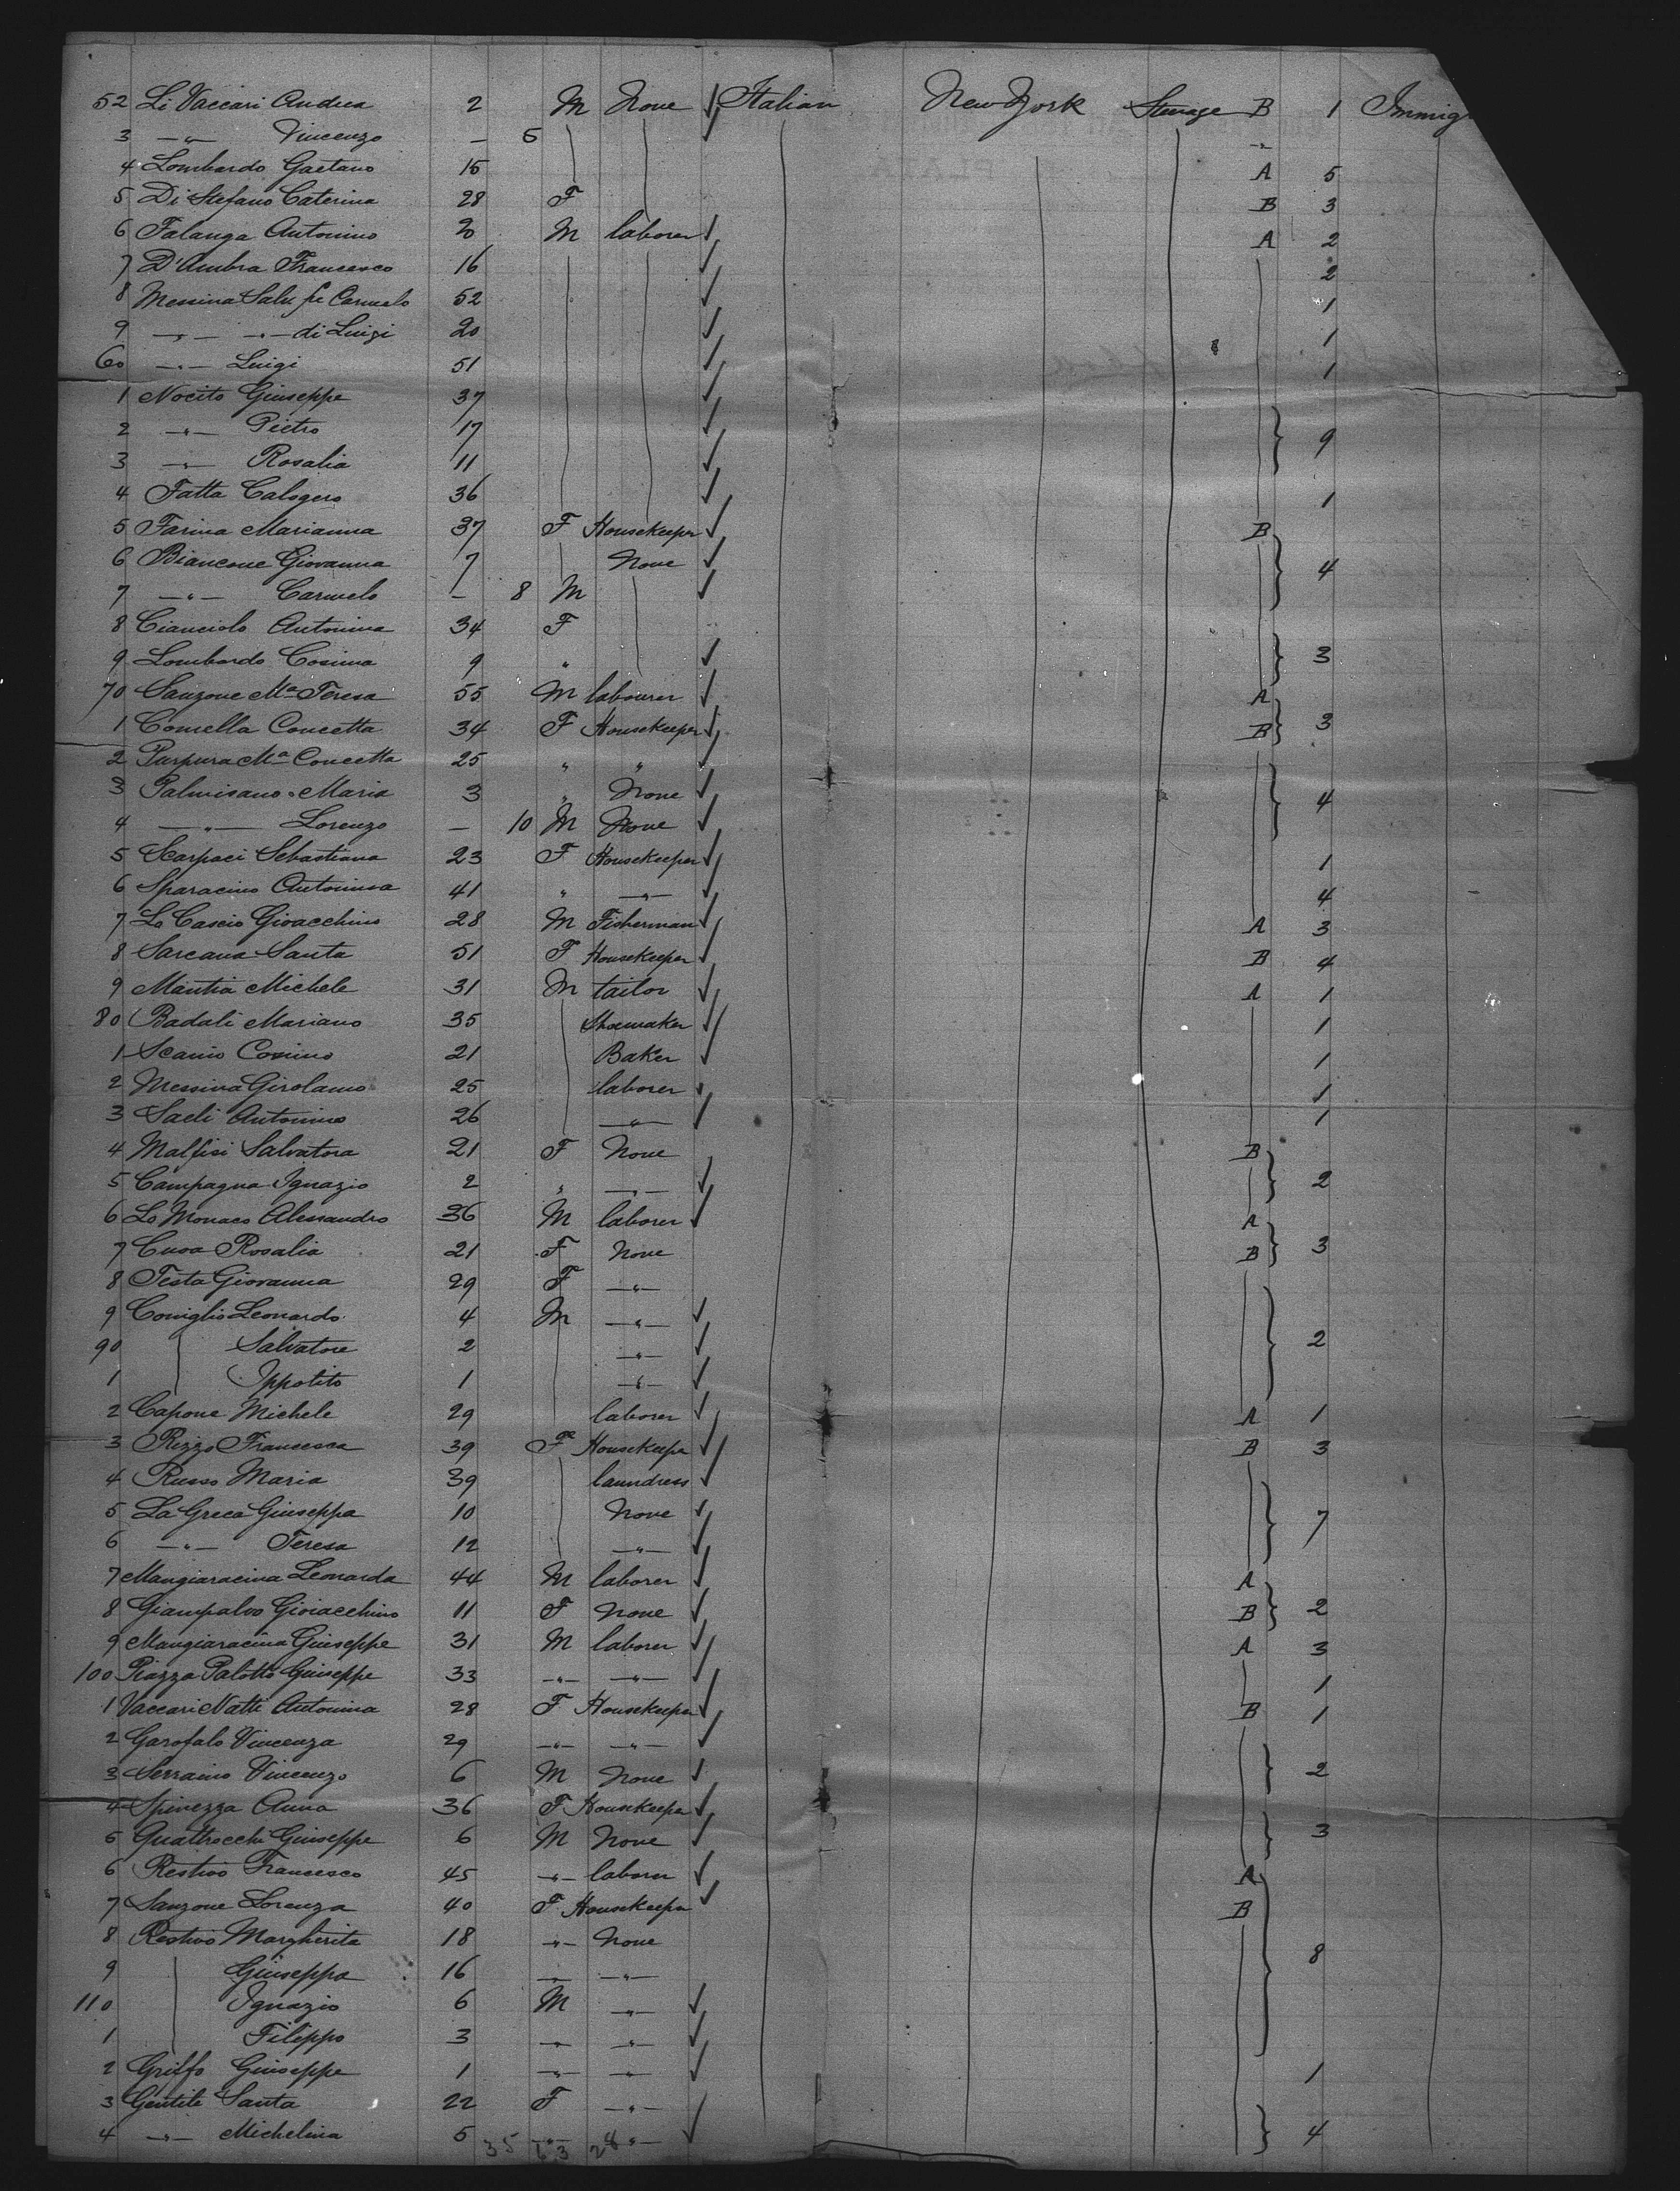 52 Li Vaccari Andrea 2 M None Italian New York Steerage B 1 Immig
3 -"- Vincenzo - 6 -"-
4 Lombardo Gaetano 15 A 5
5 Di Stefano Caterina 28 F B 3
6 Falanga Antonino 20 M laborer A 2
7 D'Ambra Francesco 16 2
8 Messina Salv fu Carmelo 52 1
9 -"- -"- di Luigi 20 1
60 -"- Luigi 51 1
1 Nocito Giuseppe 37
2 -"- Pietro 17 9
3 -"- Rosalia 11
4 Fatta Calogero 36 1
5 Farina Marianna 37 F Housekeeper B
6 Biancone Giovanna 7 None 4
7 -"- Carmelo - 8 M
8 Cianciolo Antonina 34 F
9 Lombardo Cosima 9 " 3
70 Sanzone Ma Teresa 55 M labourer A
1 Comella Concetta 34 F Housekeeper B 3
2 Purpura Ma Concetta 25 " "
3 Palmisano Maria 3 " None 4
4 -"- Lorenzo - 10 M None
5 Scarpaci Sebastiana 23 F Housekeeper 1
6 Sparacino Antonina 41 " -"- 4
7 Lo Cascio Gioacchino 28 M Fisherman A 3
8 Sarcana Santa 51 F Housekeeper B 4
9 Mantia Michele 31 M tailor A 1
80 Badali Mariano 35 Shoemaker 1
1 Scanio Cosimo 21 Baker 1
2 Messina Girolamo 25 laborer 1
3 Saeli Antonino 26 -"- 1
4 Malfisi Salvatora 21 F None B
5 Campagna Ignazio 2 " -"- 2
6 Lo Monaco Alessandro 36 M laborer A
7 Cusa Rosalia 21 F None B 3
8 Testa Giovanna 29 F -"-
9 Coniglio Leonardo 4 M -"-
90 Salvatore 2 -"- 2
1 Ippolito 1 -"-
2 Capone Michele 29 laborer A 1
3 Rizzo Francesca 39 F Housekeepe B 3
4 Russo Maria 39 laundress
5 La Greca Giuseppa 10 None 7
6 -"- Teresa 12 -"-
7 Mangiaracina Leonarda 44 M laborer A
8 Giampalvo Gioiacchino 11 F None B 2
9 Mangiaracina Giuseppe 31 M laborer A 3
100 Piazza Palotto Giuseppe 33 -"- -"- 1
1 Vaccari Natti Antonina 28 F Housekeeper B 1
2 Garofalo Vincenza 29 -"- -"-
3 Serraino Vincenzo 6 M None 2
4 Spinezza Anna 36 F Housekeeper
5 Quattrocchi Giuseppe 6 M None 3
6 Restivo Francesco 45 -"- laborer A
7 Sanzone Lorenza 40 F Housekeeper B
8 Restivo Margherita 18 -"- None 8
9 Giuseppa 16 -"- -"-
110 Ignazio 6 M -"-
1 Filippo 3 -"- -"-
2 Griffo Giuseppe 1 -"- -"- 1
3 Gentile Santa 22 F -"-
4 -"- Michelina 5 -"- -"- 4
35 63 28